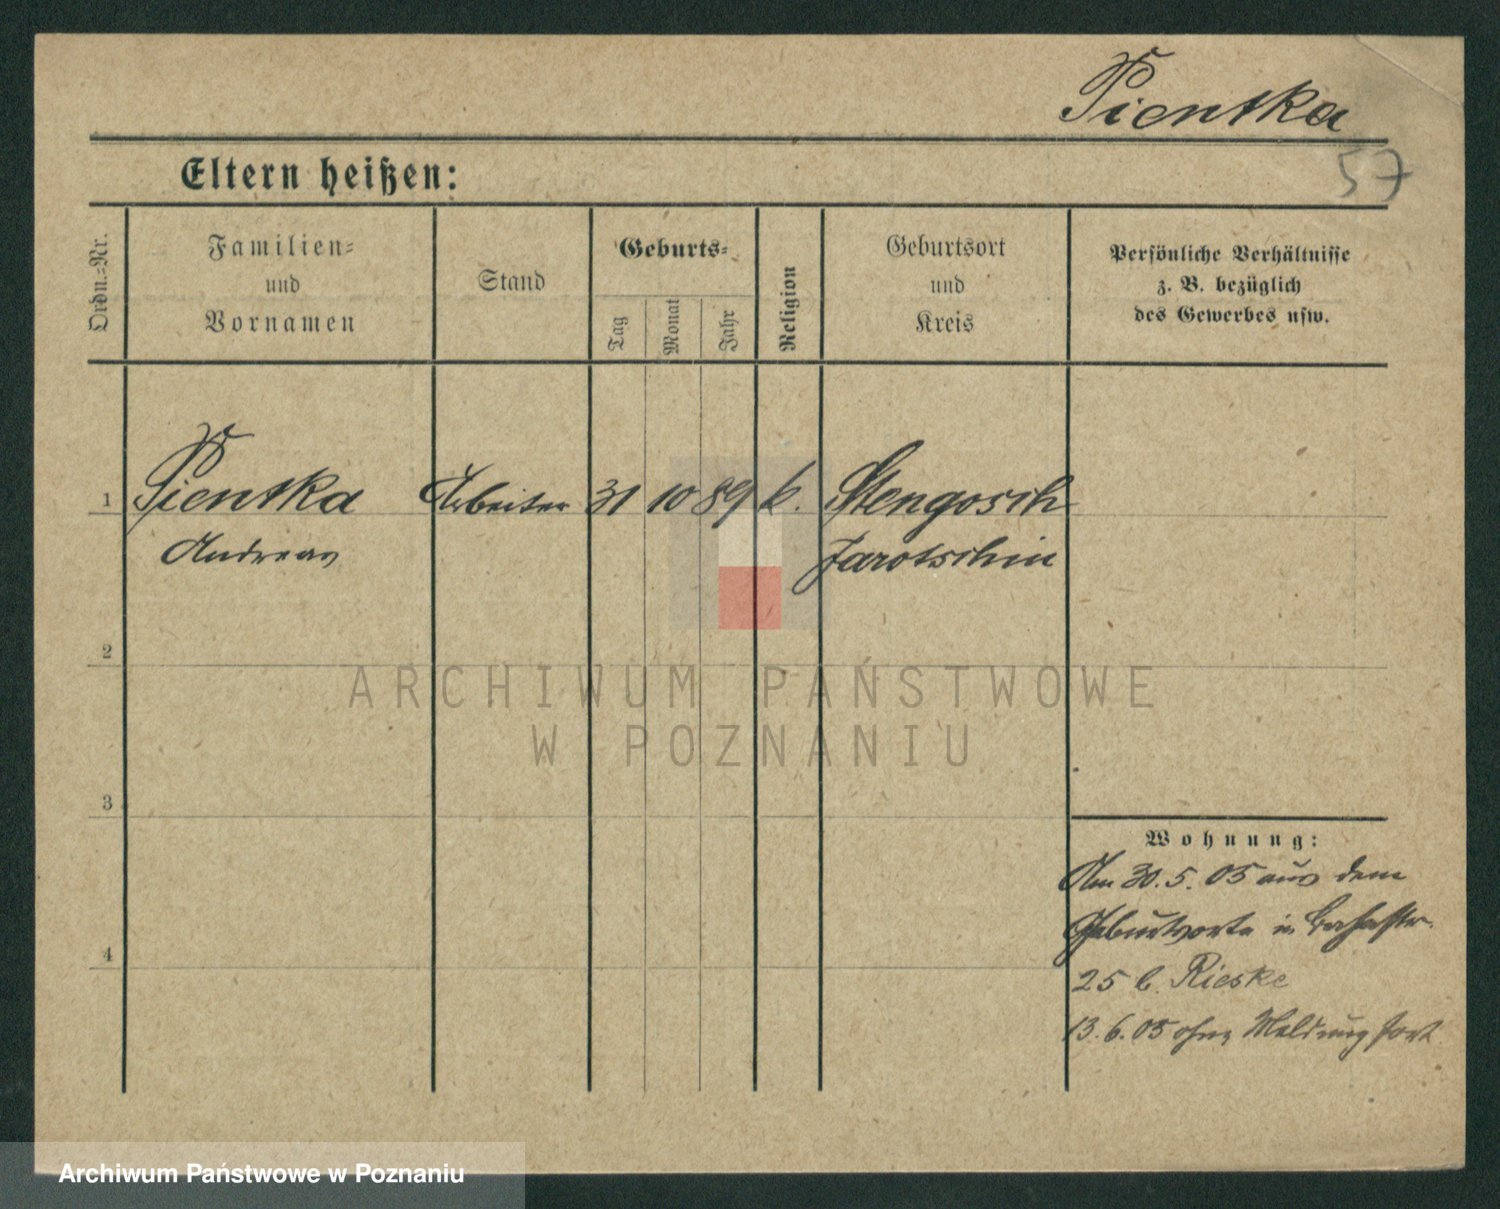 Pientka
57
Eltern heißen:
Ordn.-Nr.
Familien-
und
Vornamen
Stand
Geburts-
Tag
Monat
Jahr
Religion
Geburtsort
und
Kreis
Persönliche Verhältnisse
z. B. bezüglich
des Gewerbes usw.
1 Pientka Arbeiter 31 10 89 k. Stengosch
Andreas Jarotschin
2
ARCHIWUM PAŃSTWOWE
W POZNANIU
3
Wohnung:
Am 30. 5. 05 aus dem
4
Geburtsorte in
25 b. Rieske
13. 6. 05 ohne Meldung fort
Archiwum Państwowe w Poznaniu